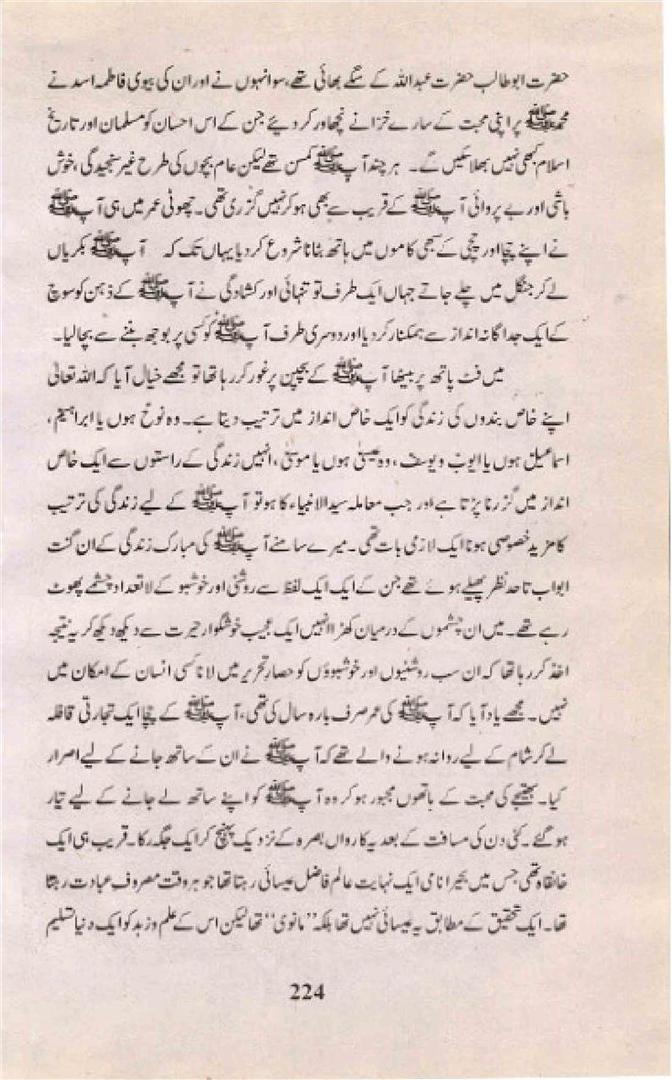 حضرت ابو طالب حضرت عبداللہ کے سگے بھائی تھے، سو انہوں نے اور ان کی بیوی فاطمہ اسد نے
محمدﷺ پر اپنی محبت کے سارے خزانے نچھاور کر دیئے جن کے اس احسان کو مسلمان اور تاریخ
اسلام کبھی نہیں بھلا سکیں گے۔ ہر چند آپﷺ کمسن تھے لیکن عام بچوں کی طرح غیر سنجیدگی، خوش
باشی اور بے پروائی آپﷺ کے قریب سے بھی ہو کر نہیں گزری تھی۔ چھوٹی عمر میں ہی آپﷺ
نے اپنے چچا اور چچی کے سبھی کاموں میں ہاتھ بٹانا شروع کر دیا یہاں تک کہ آپﷺ بکریاں
لے کر جنگل میں چلے جاتے جہاں ایک طرف تو تنہائی اور کشادگی نے آپﷺ کے ذہن کو سوچ
کے ایک جداگانہ انداز سے ہمکنار کر دیا اور دوسری طرف آپﷺ کو کسی پر بوجھ بننے سے بچا لیا۔
میں فٹ پاتھ پر بیٹھا آپﷺ کے بچپن پر غور کر رہا تھا تو مجھے خیال آیا کہ اللہ تعالیٰ
اپنے خاص بندوں کی زندگی کو ایک خاص انداز میں ترتیب دیتا ہے۔ وہ نوحؑ ہوں یا ابراہیمؑ،
اسماعیلؑ ہوں یا ایوبؑ و یوسفؑ، وہ عیسیٰؑ ہوں یا موسیٰؑ، انہیں زندگی کے راستوں سے ایک خاص
انداز میں گزرنا پڑتا ہے اور جب معاملہ سید الانبیاء کا ہو تو آپﷺ کے لیے زندگی کی ترتیب
کا مزید خصوصی ہونا ایک لازمی بات تھی۔ میرے سامنے آپﷺ کی مبارک زندگی کے ان گنت
ابواب تاحد نظر پھیلے ہوئے تھے جن کے ایک ایک لفظ سے روشنی اور خوشبو کے لاتعداد چشمے پھوٹ
رہے تھے۔ میں ان چشموں کے درمیان کھڑا انہیں ایک عجیب خوشگوار حیرت سے دیکھ دیکھ کر یہ نتیجہ
اخذ کر رہا تھا کہ ان سب روشنیوں اور خوشبوؤں کو حصار تحریر میں لانا کسی انسان کے امکان میں
نہیں۔ مجھے یاد آیا کہ آپﷺ کی عمر صرف بارہ سال کی تھی، آپﷺ کے چچا ایک تجارتی قافلہ
لے کر شام کے لیے روانہ ہونے والے تھے کہ آپﷺ نے ان کے ساتھ جانے کے لیے اصرار
کیا۔ بھتیجے کی محبت کے ہاتھوں مجبور ہو کر وہ آپﷺ کو اپنے ساتھ لے جانے کے لیے تیار
ہو گئے۔ کئی دن کی مسافت کے بعد یہ کارواں بصرہ کے نزدیک پہنچ کر ایک جگہ رکا۔ قریب ہی ایک
خانقاہ تھی جس میں بحیرا نامی ایک نہایت عالم فاضل عیسائی رہتا تھا جو ہر وقت مصروف عبادت رہتا
تھا۔ ایک تحقیق کے مطابق یہ عیسائی نہیں تھا بلکہ ’’مانوی‘‘ تھا لیکن اس کے علم و زہد کو ایک دنیا تسلیم
224